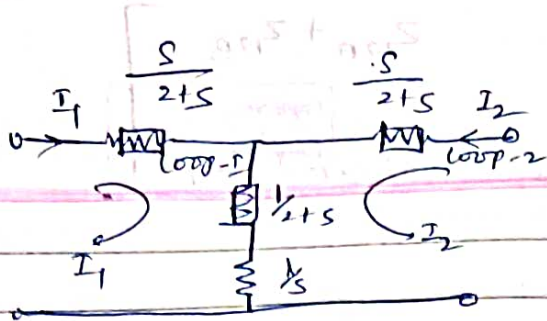 S/2+S
S/2+S
I1
I2
Loop-I
Loop-2
1/2+S
I1
I2
1/S